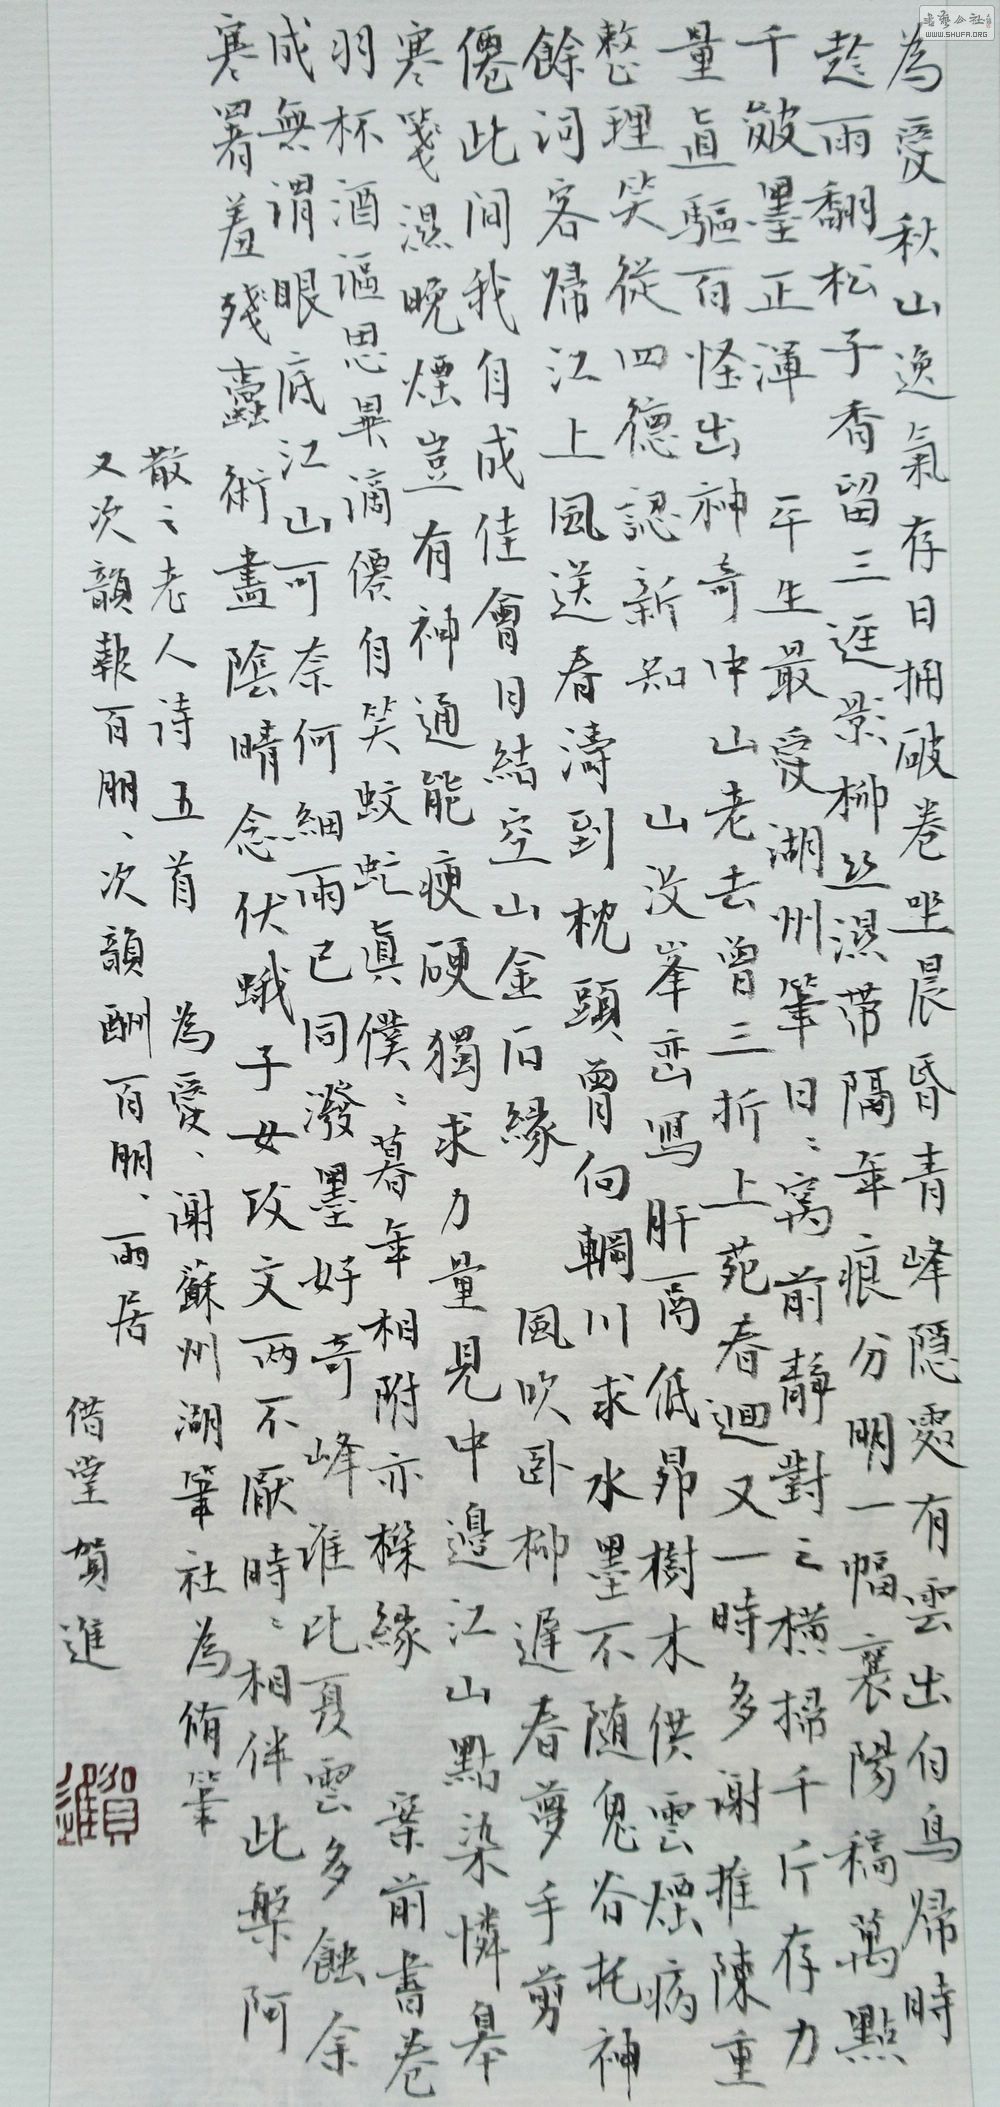 為愛秋山逸氣存日擁破卷坐晨昏青峰隱處有雲出白鳥歸時
趁雨翻松子香留三逕影柳絲濕帶隔年痕分明一幅襄陽稿萬點
千皴墨正渾 平生最愛湖州筆日〻窩前靜對之橫掃千斤存力
量直驅百怪出神奇中山老去曾三折上苑春迴又一時多謝推陳重
整理笑從四德認新知 山沒峯巒寫肝膈低昂樹木供雲煙病
餘詞客歸江上風送春濤到枕頭曾向輞川求水墨不隨鬼谷托神
僊此間我自成佳會月結空山金石緣 風吹卧柳遲春夢手剪
寒箋濕晚煙豈有神通能瘦硬獨求力量見中邊江山點染憐皋
羽杯酒謳思異謫僊自笑蚊虻真僕〻暮年相附亦樑緣 案前書卷
成無謂眼底江山可奈何細雨已同潑墨好奇峰誰比夏雲多蝕余
寒暑羞殘蠹術盡陰晴念伏蛾子女攻文兩不厭時〻相伴此槃阿
散之老人詩五首 為愛、謝蘇州湖筆社為脩筆
又次韻報百朋、次韻酬百朋、雨居
借堂賀進
賀進
書藝公社
WWW.SHUFA.ORG